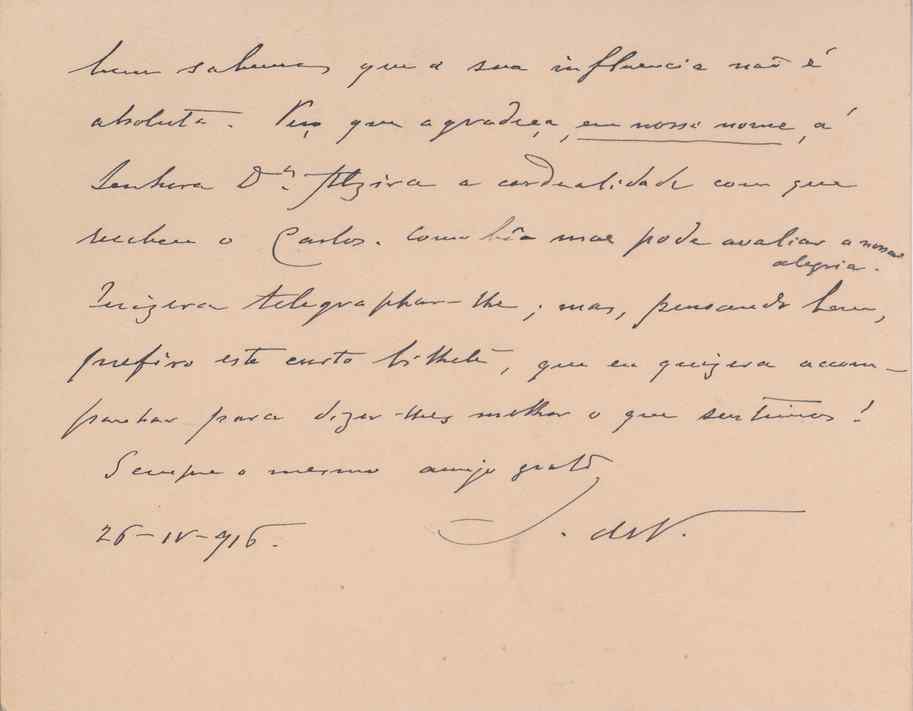 bem sabemos que a sua influencia não é
absoluta. Peço que agradeça, em nosso nome, á
Senhora D.ª Alzira a cordealidade com que
recebeu o Carlos. Como bôa mae pode avaliar a nossa
alegria.
Quizera telegraphar-lhe; mas, pensando bem,
prefiro este curto bilhete, que eu quizera acom-
panhar para dizer-lhes melhor o que sentimos!
Sempre o mesmo amigo grato
26-IV-916. J. de V.